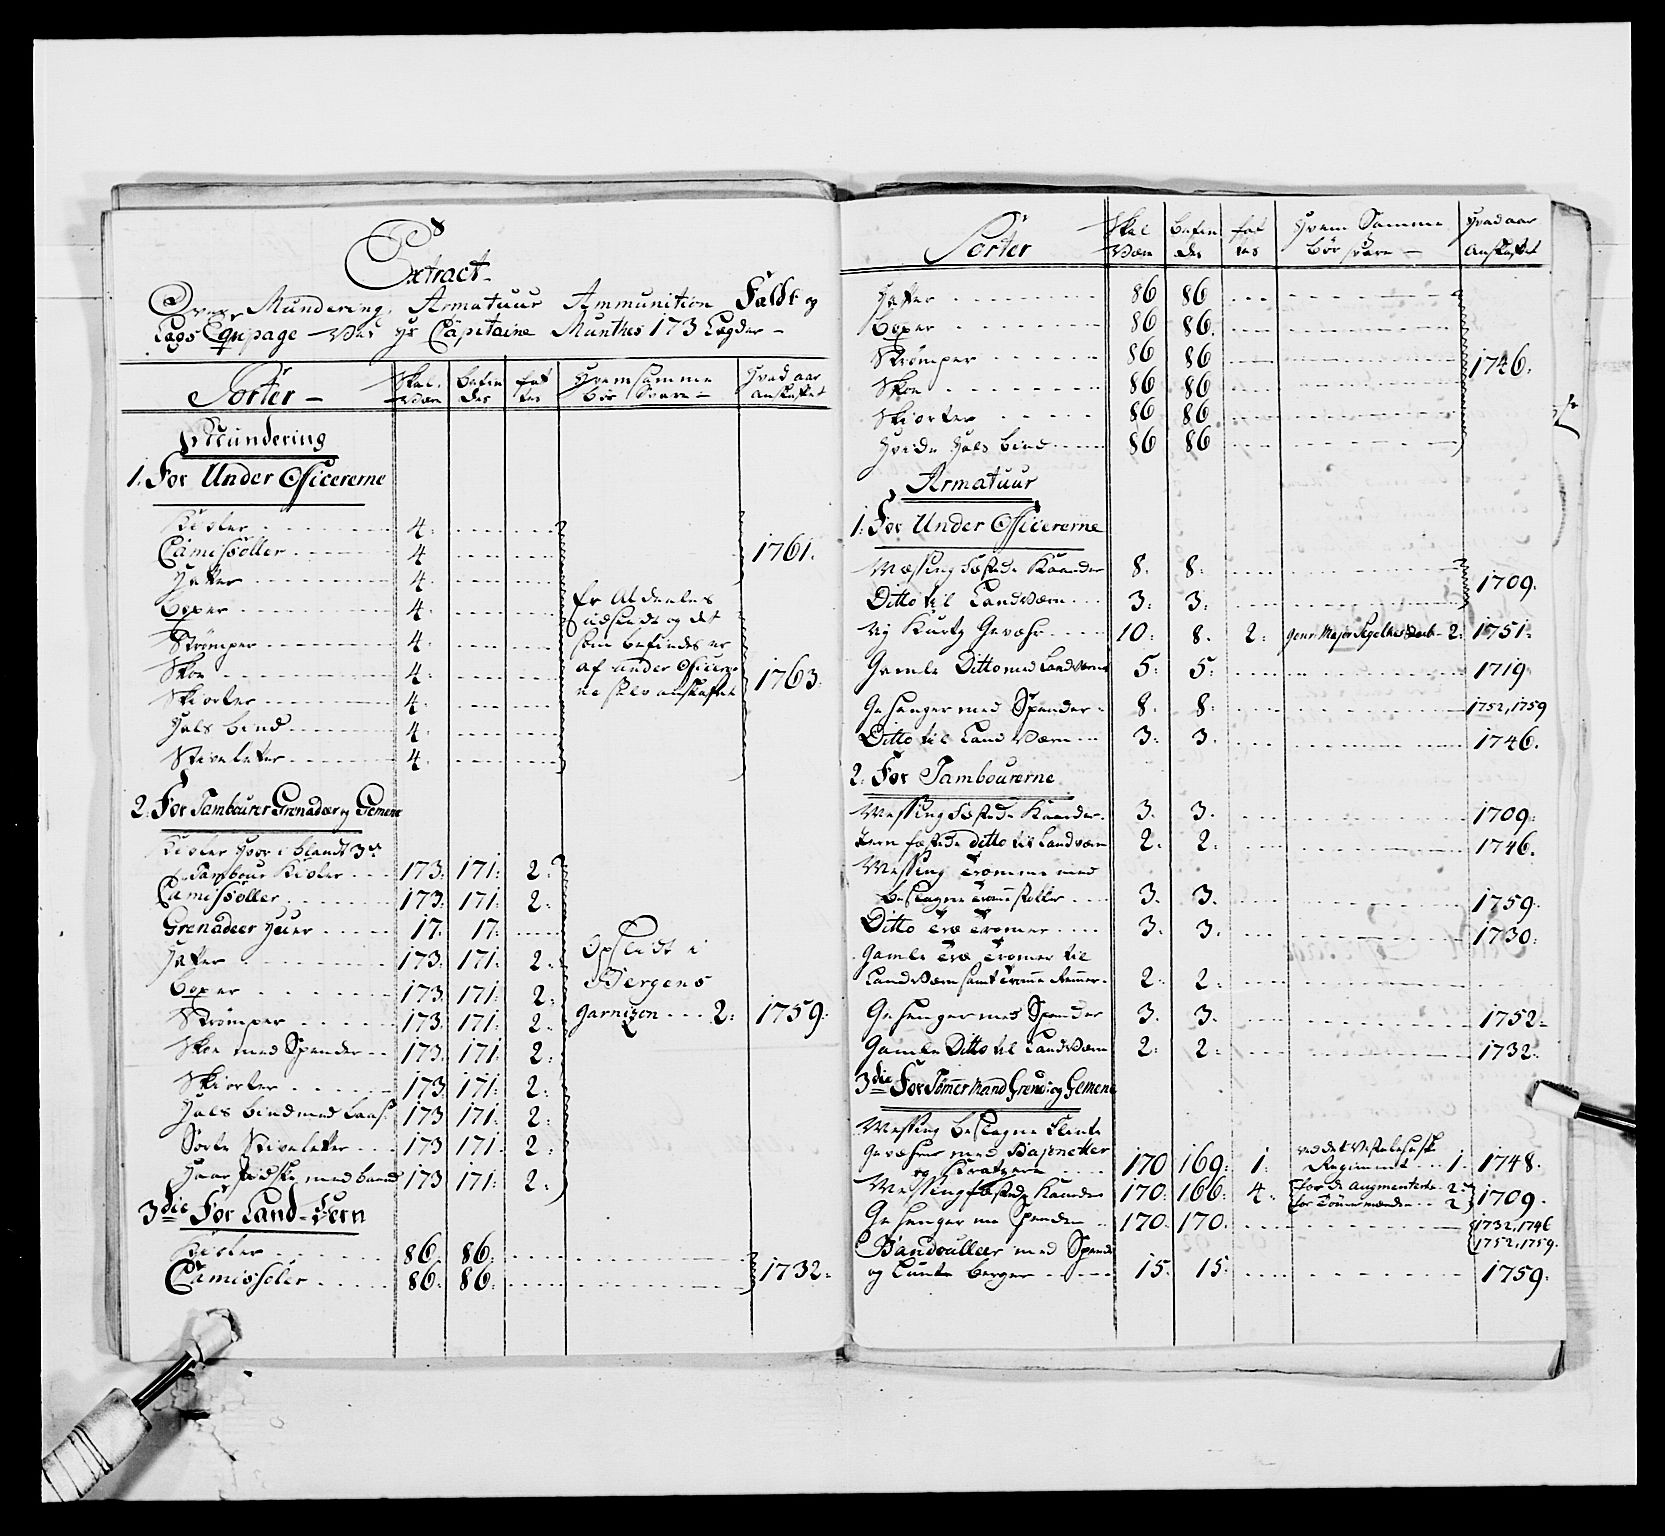 Extract
Over Mundering, Armatuur Ammunition Faldt og
Lags Equipage Ved Hr Capitaine Munthes 173 Lægder
Sorter Skal Være Befindes Fattes Hvem samme bør Svare Hvad aar anskaffet
Mundering
1. For Under Officererne
Kioler 4
Camisöller 4 1761.
Hatter 4
Boxer 4 Er Aldeeles
Strømper 4 udslidt og det
Skoe 4 som befindes er
af under Officerer
Skiorter 4 ne selv anskaffet 1763.
Hals bind 4
Stiveletter 4
2. For Tambourer Grenadær og Gemene
Kioler hvor i blandt 3de
Tambour Kioler 173. 171. 2.
Camisöller 173. 171. 2.
Grenadeer Huer 17. 17.
Hatter 173. 171. 2. Opslidt i
Boxer 173. 171. 2. Bergens
Strømper 173. 171. 2. Garnizon 2. 1759.
Skoe med Spender 173. 171. 2.
Skiorter 173. 171. 2.
Hals bind med Laas 173. 171. 2.
Sorte Stiveletter 173. 171. 2.
Haar Pidske med baand 173. 171. 2.
3die For Land-Vern
Kioler 86. 86.
Camisoler 86. 86. 1732.
Sorter Skal Være Befindes Fattes Hvem Samme bør svare Hvad aar Anskaffet
Hatter 86 86
Boxer 86 86.
Strømper 86 86 1746.
Skoe 86 86
Skiorter 86 86
Hvide Hals bind 86 86
Armatuur
1. For Under Officererne
Messing Fæstede Kaarder 8. 8. 1709.
Ditto til LandVærn 3. 3.
Ny Kurtz Gevæhr 10. 8. 2. 2. 1751.
Gamle Ditto med Landværnet 5. 5. 1719
Gehenger med Spender 8. 8. 1752, 1759
Ditto til Land Værn 3. 3. 1746.
2. For Tambourerne
Messing Fæstede Kaarder 3. 3. 1709.
Jern fæstede ditto til Landværn 2. 2. 1746.
Messing Tromme med
beslagne Trommestokker 3. 3. 1759.
Ditto Træ Tromer 3. 3. 1730.
Gamle Træ Tromer til
LandVærn samt Tromme Remmer 2. 2.
Gehenger med Spender 3. 3. 1752.
Gamle Ditto til LandVærn 2. 2. 1732.
3die For Tømermænd Grend: og Gemene
Messing beslagne Flinte
Gevæhrer med Bajonetter
og Kratzere 170 169. 1. Regiment 1. 1748.
Messingfæstede Kaarder 170. 166. 4. for de Augmenterede 2. for Tømmermænden 2. 1709.
Gehenger med Spender 170. 170. 1732, 1746 1752, 1759.
Bandoulleer med Spende
og Lunte berger 15. 15. 1759.